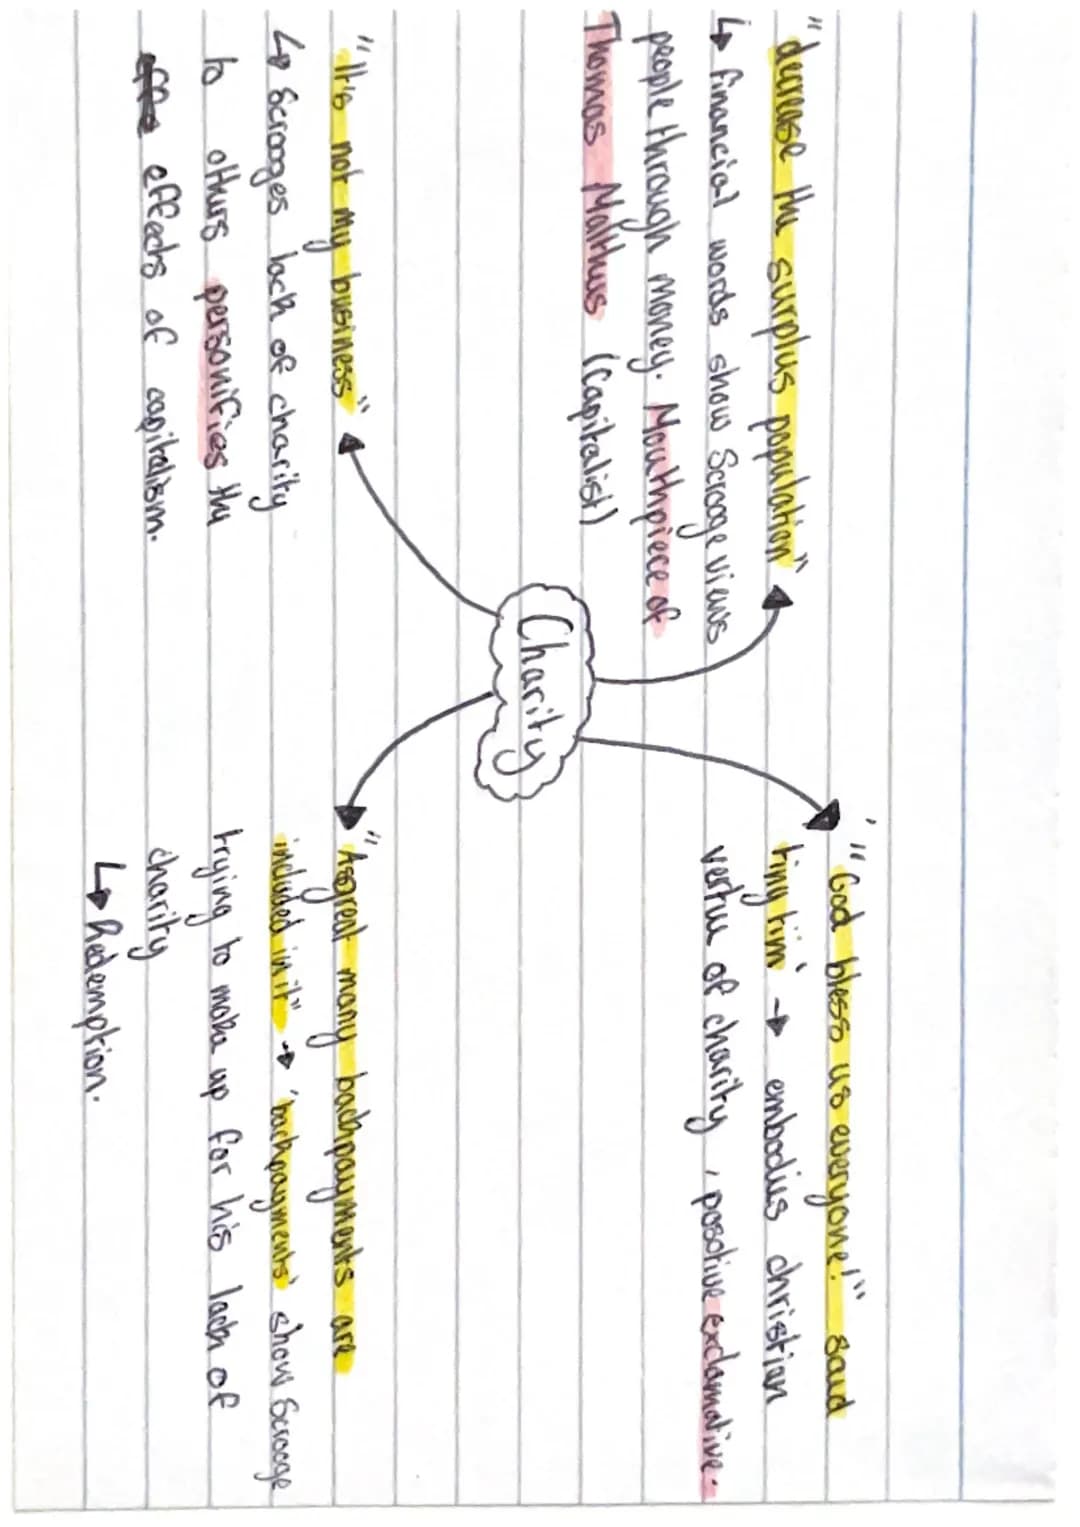 "decrease the surplus population"
↳ financial words show Scrooge views
people through money. Mouthpiece of
Thomas Malthus (Capitalist)
'"God bless us everyone!"' said
tiny tim' → embodies christian
vertue of charity, posotive exclamative.
Charity
"It's not my business"
↳ Scrooges lack of charity
to others personifies the
effects of capitalism.
"A great many backpayments are
included in it" → 'backpayments' show Scrooge
trying to make up for his lack of
charity
↳ Redemption.